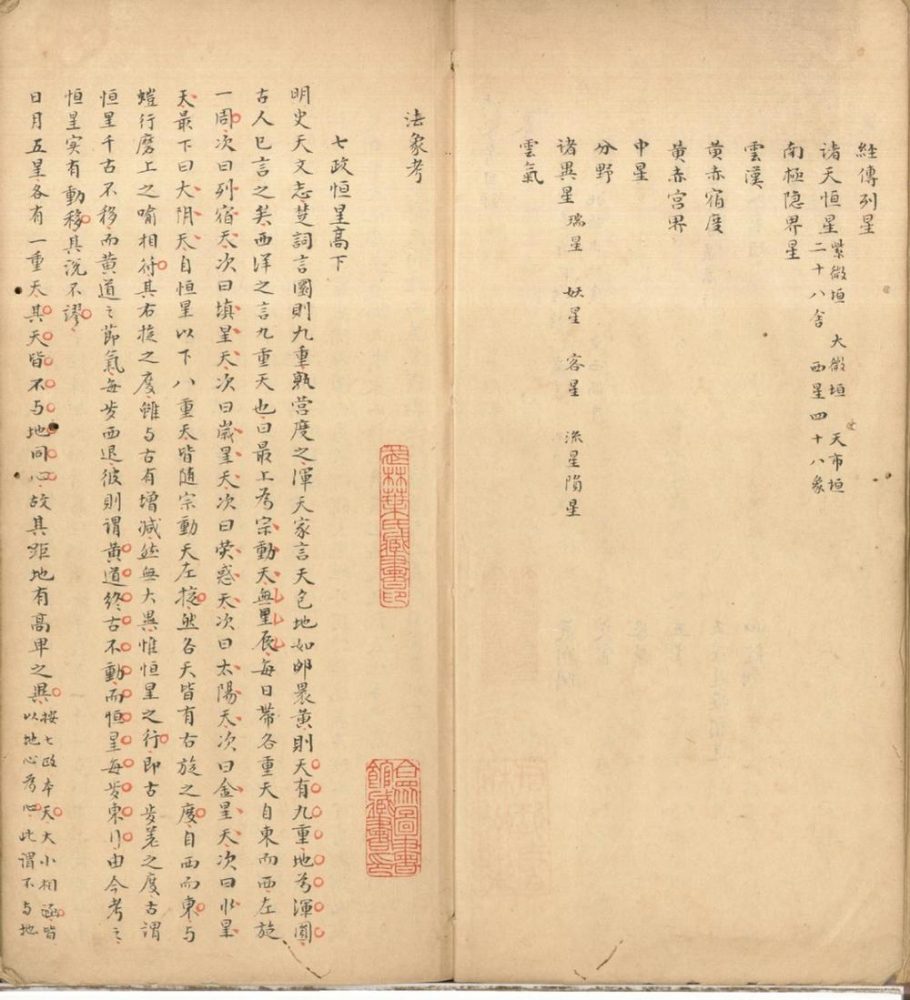 經傳列星
諸天恒星 紫微垣 大微垣 天市垣
二十八舍 西星四十八象
南極隠界星
雲漢
黄赤宿度
黄赤宮界
中星
分野
諸異星 瑞星 妖星 客星 流星隕星
雲氣
法象考
七政恒星高下
明史天文志楚詞言圜則九重孰營度之渾天家言天包地如卵裹黄則天有九重地為渾圓
古人已言之矣西洋之言九重天也曰最上為宗動天無星辰每日帶各重天自東而西左旋
一周次曰列宿天次曰填星天次曰歲星天次曰熒惑天次曰太陽天次曰金星天次曰水星
天最下曰大阴天自恒星以下八重天皆随宗動天左旋然各天皆有右旋之度自西而東与
螘行磨上之喻相符其右旋之度雖与古有增减然無大異惟恒星之行即古步差之度古謂
恒星千古不移而黄道之節氣每步西退彼則謂黄道終古不動而恒星每步東行由今考之
恒星实有動移其說不謬
日月五星各有一重天其天皆不与地同心故其距地有高卑之異 按七政本天大小相函皆
以地心為心此謂不与地